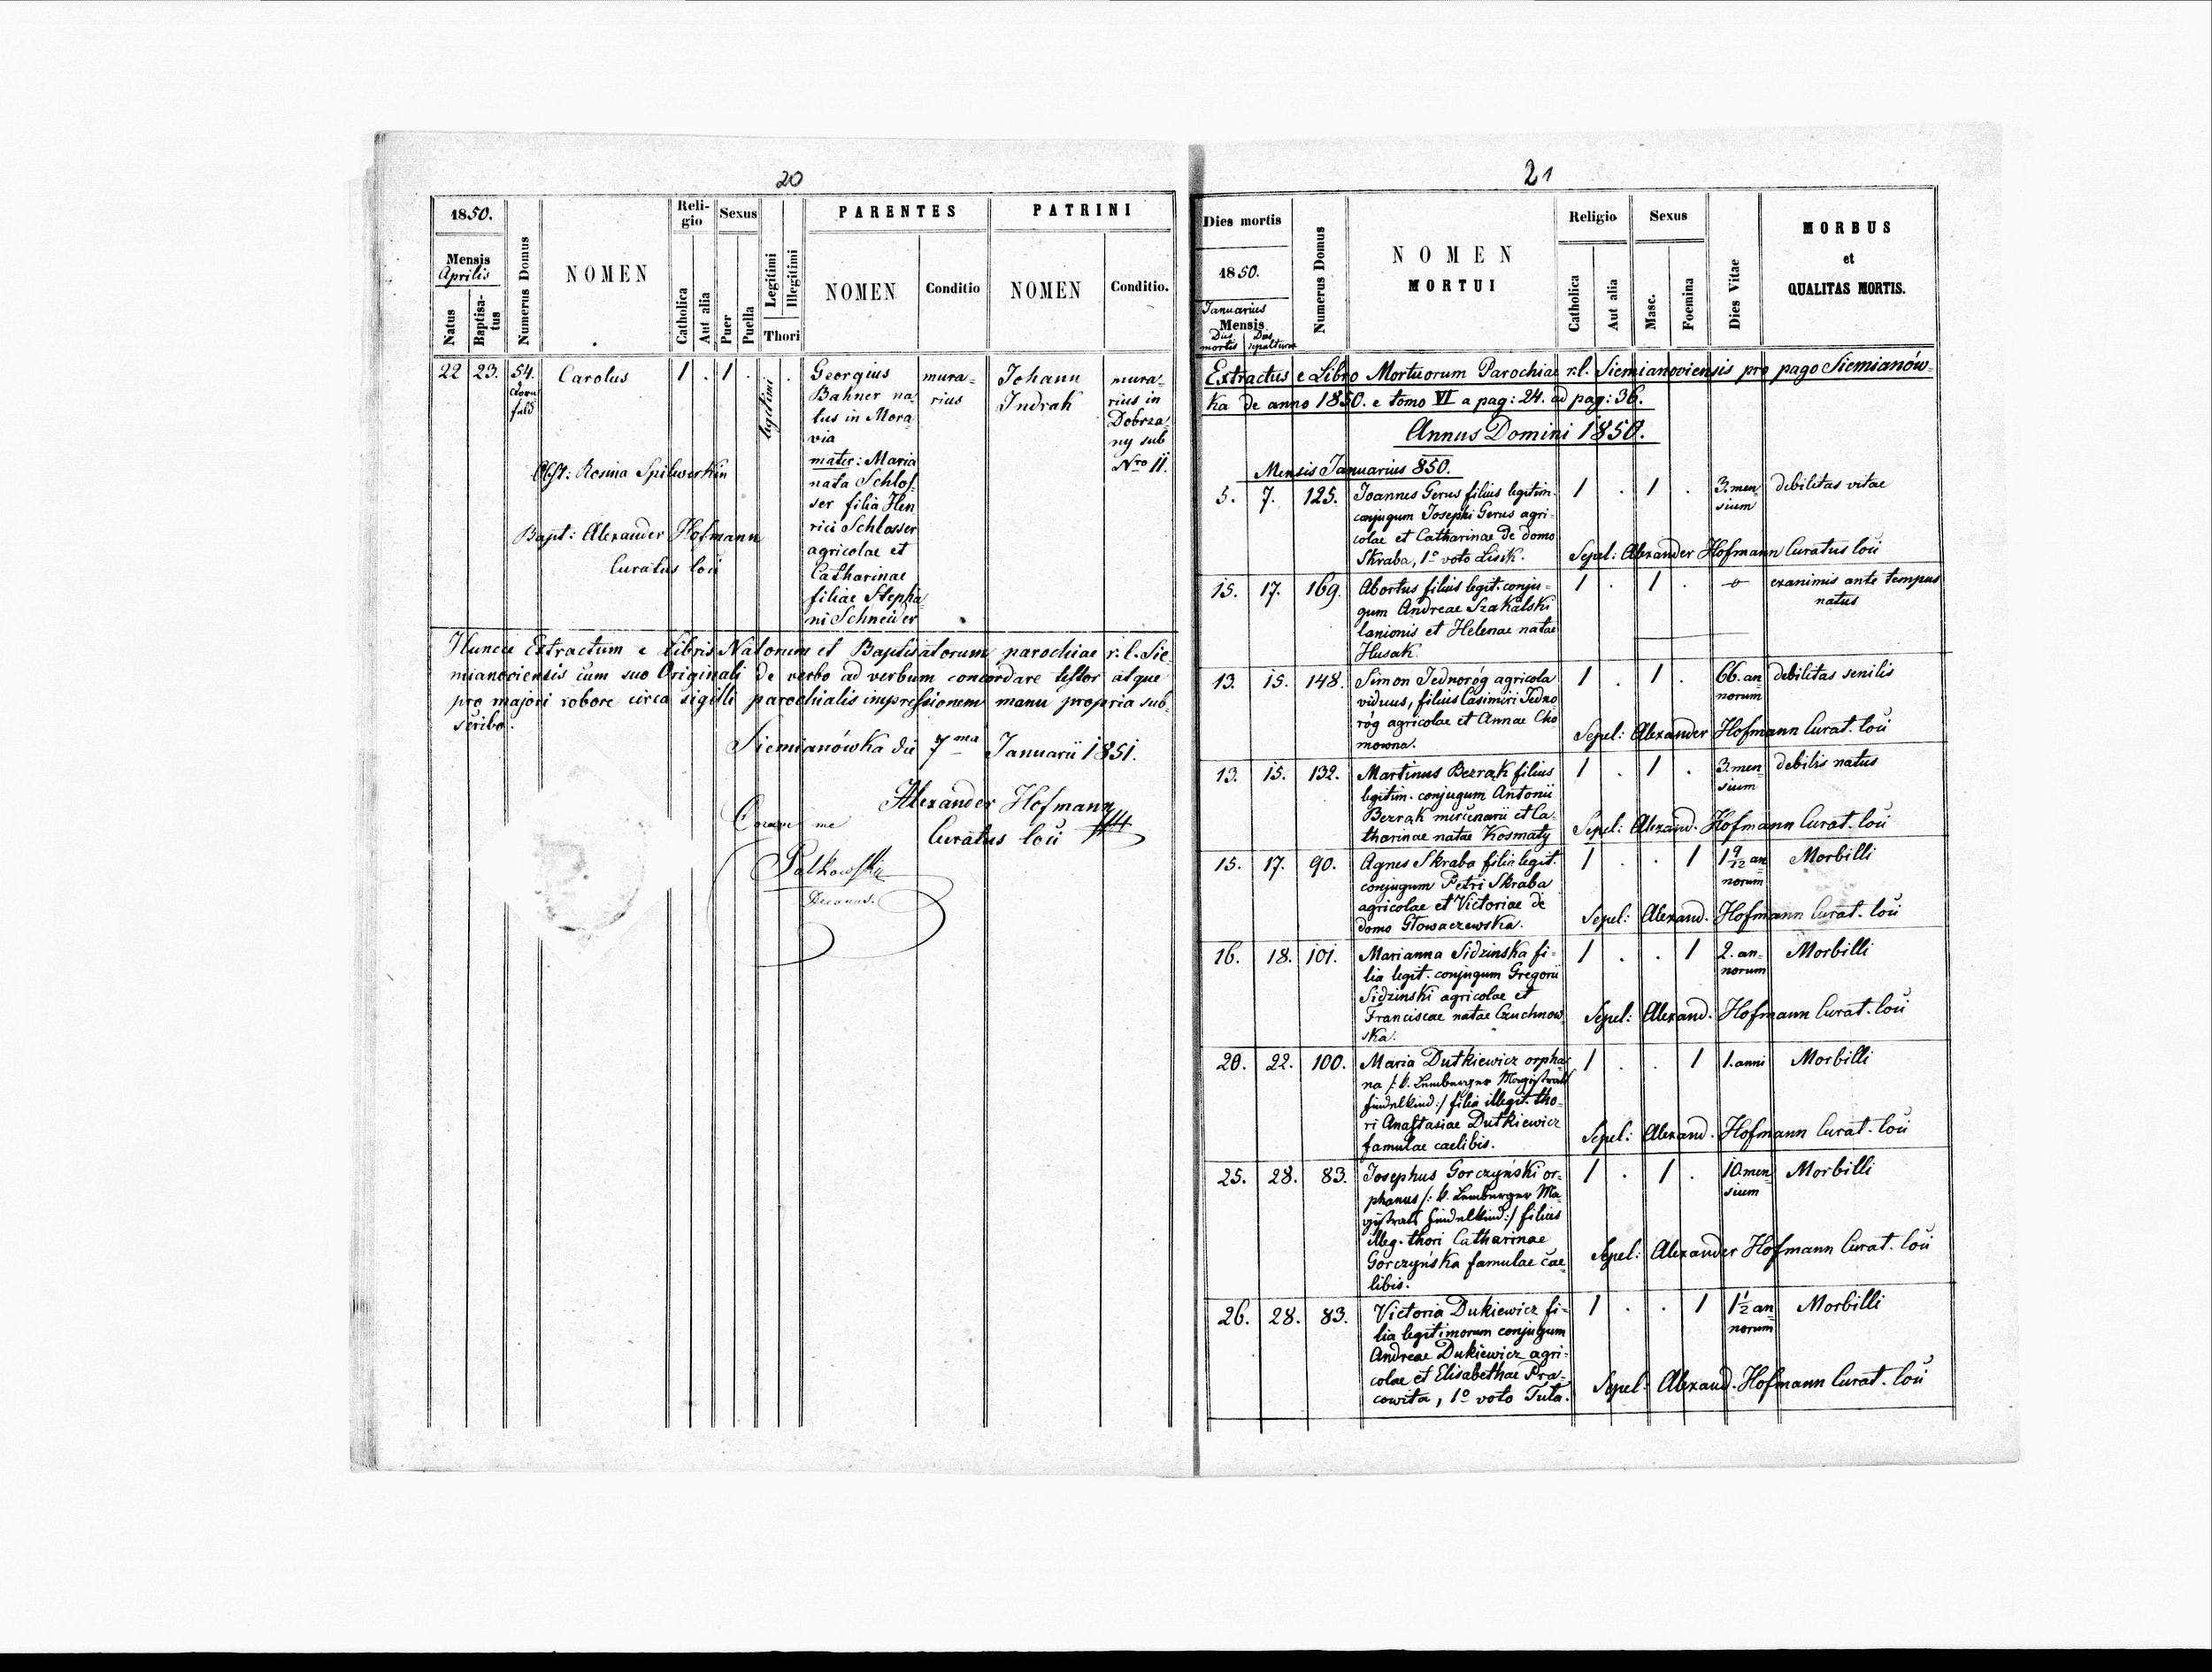 20
1850.
Mensis
Aprilis
Natus
Baptisa-
tus
Numerus Domus
NOMEN
Reli-
gio
Catholica
Aut alia
Sexus
Puer
Puella
Legitimi
Illegitimi
Thori
PARENTES
NOMEN
Conditio
PATRINI
NOMEN
Conditio.
22 23. 54. Carolus 1 . 1 . legitimi .
feld
Georgius
Bahner na-
tus in Mora-
via
mater: Maria
nata Schlos-
ser filia Hen
rici Schlosser
agricolae et
Catharinae
filiae Stepha-
ni Schneider
mura-
rius
Johann
Indrak
mura-
rius in
Dobrza-
ny sub
Nro 11.
Obst: Rosina Spilwerkin
Bapt: Alexander Hofmann
Curatus loci
Hunce Extractum e Libris Natorum et Baptisatorum parochiae r.l. Sie-
mianoviensis cum suo Originali de verbo ad verbum concordare testor atque
pro majori robore circa sigilli parochialis impressionem manu propria sub-
scribo.
Siemianówka die 7ma Januarii 1851.
Alexander Hofmann
Curatus loci
Coram me
Decanus.
21
Dies mortis
1850.
Januarius
Mensis
Dies
mortis
Dies
sepulturae
Numerus Domus
NOMEN
MORTUI
Religio
Catholica
Aut alia
Sexus
Masc.
Foemina
Dies Vitae
MORBUS
et
QUALITAS MORTIS.
Extractus e Libro Mortuorum Parochiae r.l. Siemianoviensis pro pago Siemianów-
ka de anno 1850. e tomo VI a pag: 24. ad pag: 36.
Annus Domini 1850.
Mensis Januarius 850.
5. 7. 125. Joannes Gerus filius legitim. 1 . 1 . 3. men- debilitas vitae
conjugum Josephi Gerus agri- sium
colae et Catharinae de domo
Skraba, 1o voto Lisik. Sepel: Alexander Hofmann Curatus loci
15. 17. 169. Abortus filius legit. conju- 1 . 1 . exanimis ante tempus
gum Andreae Szakalski natus
lanionis et Helenae natae
Husak.
13. 15. 148. Simon Jednoróg agricola 1 . 1 . 66. an- debilitas senilis
viduus, filius Casimiri Jedno- norum
róg agricolae et Annae Cho
mowna. Sepel: Alexander Hofmann Curat. loci
13. 15. 132. Martinus Bezrąk filius 1 . 1 . 3. men- debilis natus
legitim. conjugum Antonii sium
Bezrąk mercenarii et Ca-
tharinae natae Kosmaty Sepel: Alexand. Hofmann Curat. loci
15. 17. 90. Agnes Skraba filia legit. 1 . . 1 1 9/12 an Morbilli
conjugum Petri Skraba norum
agricolae et Victoriae de
domo Głowaczewska. Sepel: Alexand. Hofmann Curat. loci
16. 18. 101. Marianna Sidzinska fi- 1 . . 1 2. an- Morbilli
lia legit. conjugum Gregorii norum
Sidzinski agricolae et
Franciscae natae Czuchnow- Sepel: Alexand. Hofmann Curat. loci
ska.
20. 22. 100. Maria Dutkiewicz orpha- 1 . . 1 1. anni Morbilli
na /: k. Lemberger Magistrats
Findelkind :/ filia illegit. tho-
ri Anastasiae Dutkiewicz Sepel: Alexand. Hofmann Curat. loci
famulae caelibis.
25. 28. 83. Josephus Gorczyński or- 1 . 1 . 10. men Morbilli
phanus /: k. Lemberger Ma- sium
gistrats Findelkind :/ filius
illeg. thori Catharinae
Gorczyńska famulae cae- Sepel: Alexander Hofmann Curat. loci
libis.
26. 28. 83. Victoria Dukiewicz fi- 1 . . 1 1 1/2 an Morbilli
lia legitimorum conjugum norum
Andreae Dukiewicz agri-
colae et Elisabethae Pra-
cowita, 1o voto Tuta. Sepel: Alexand. Hofmann Curat. loci